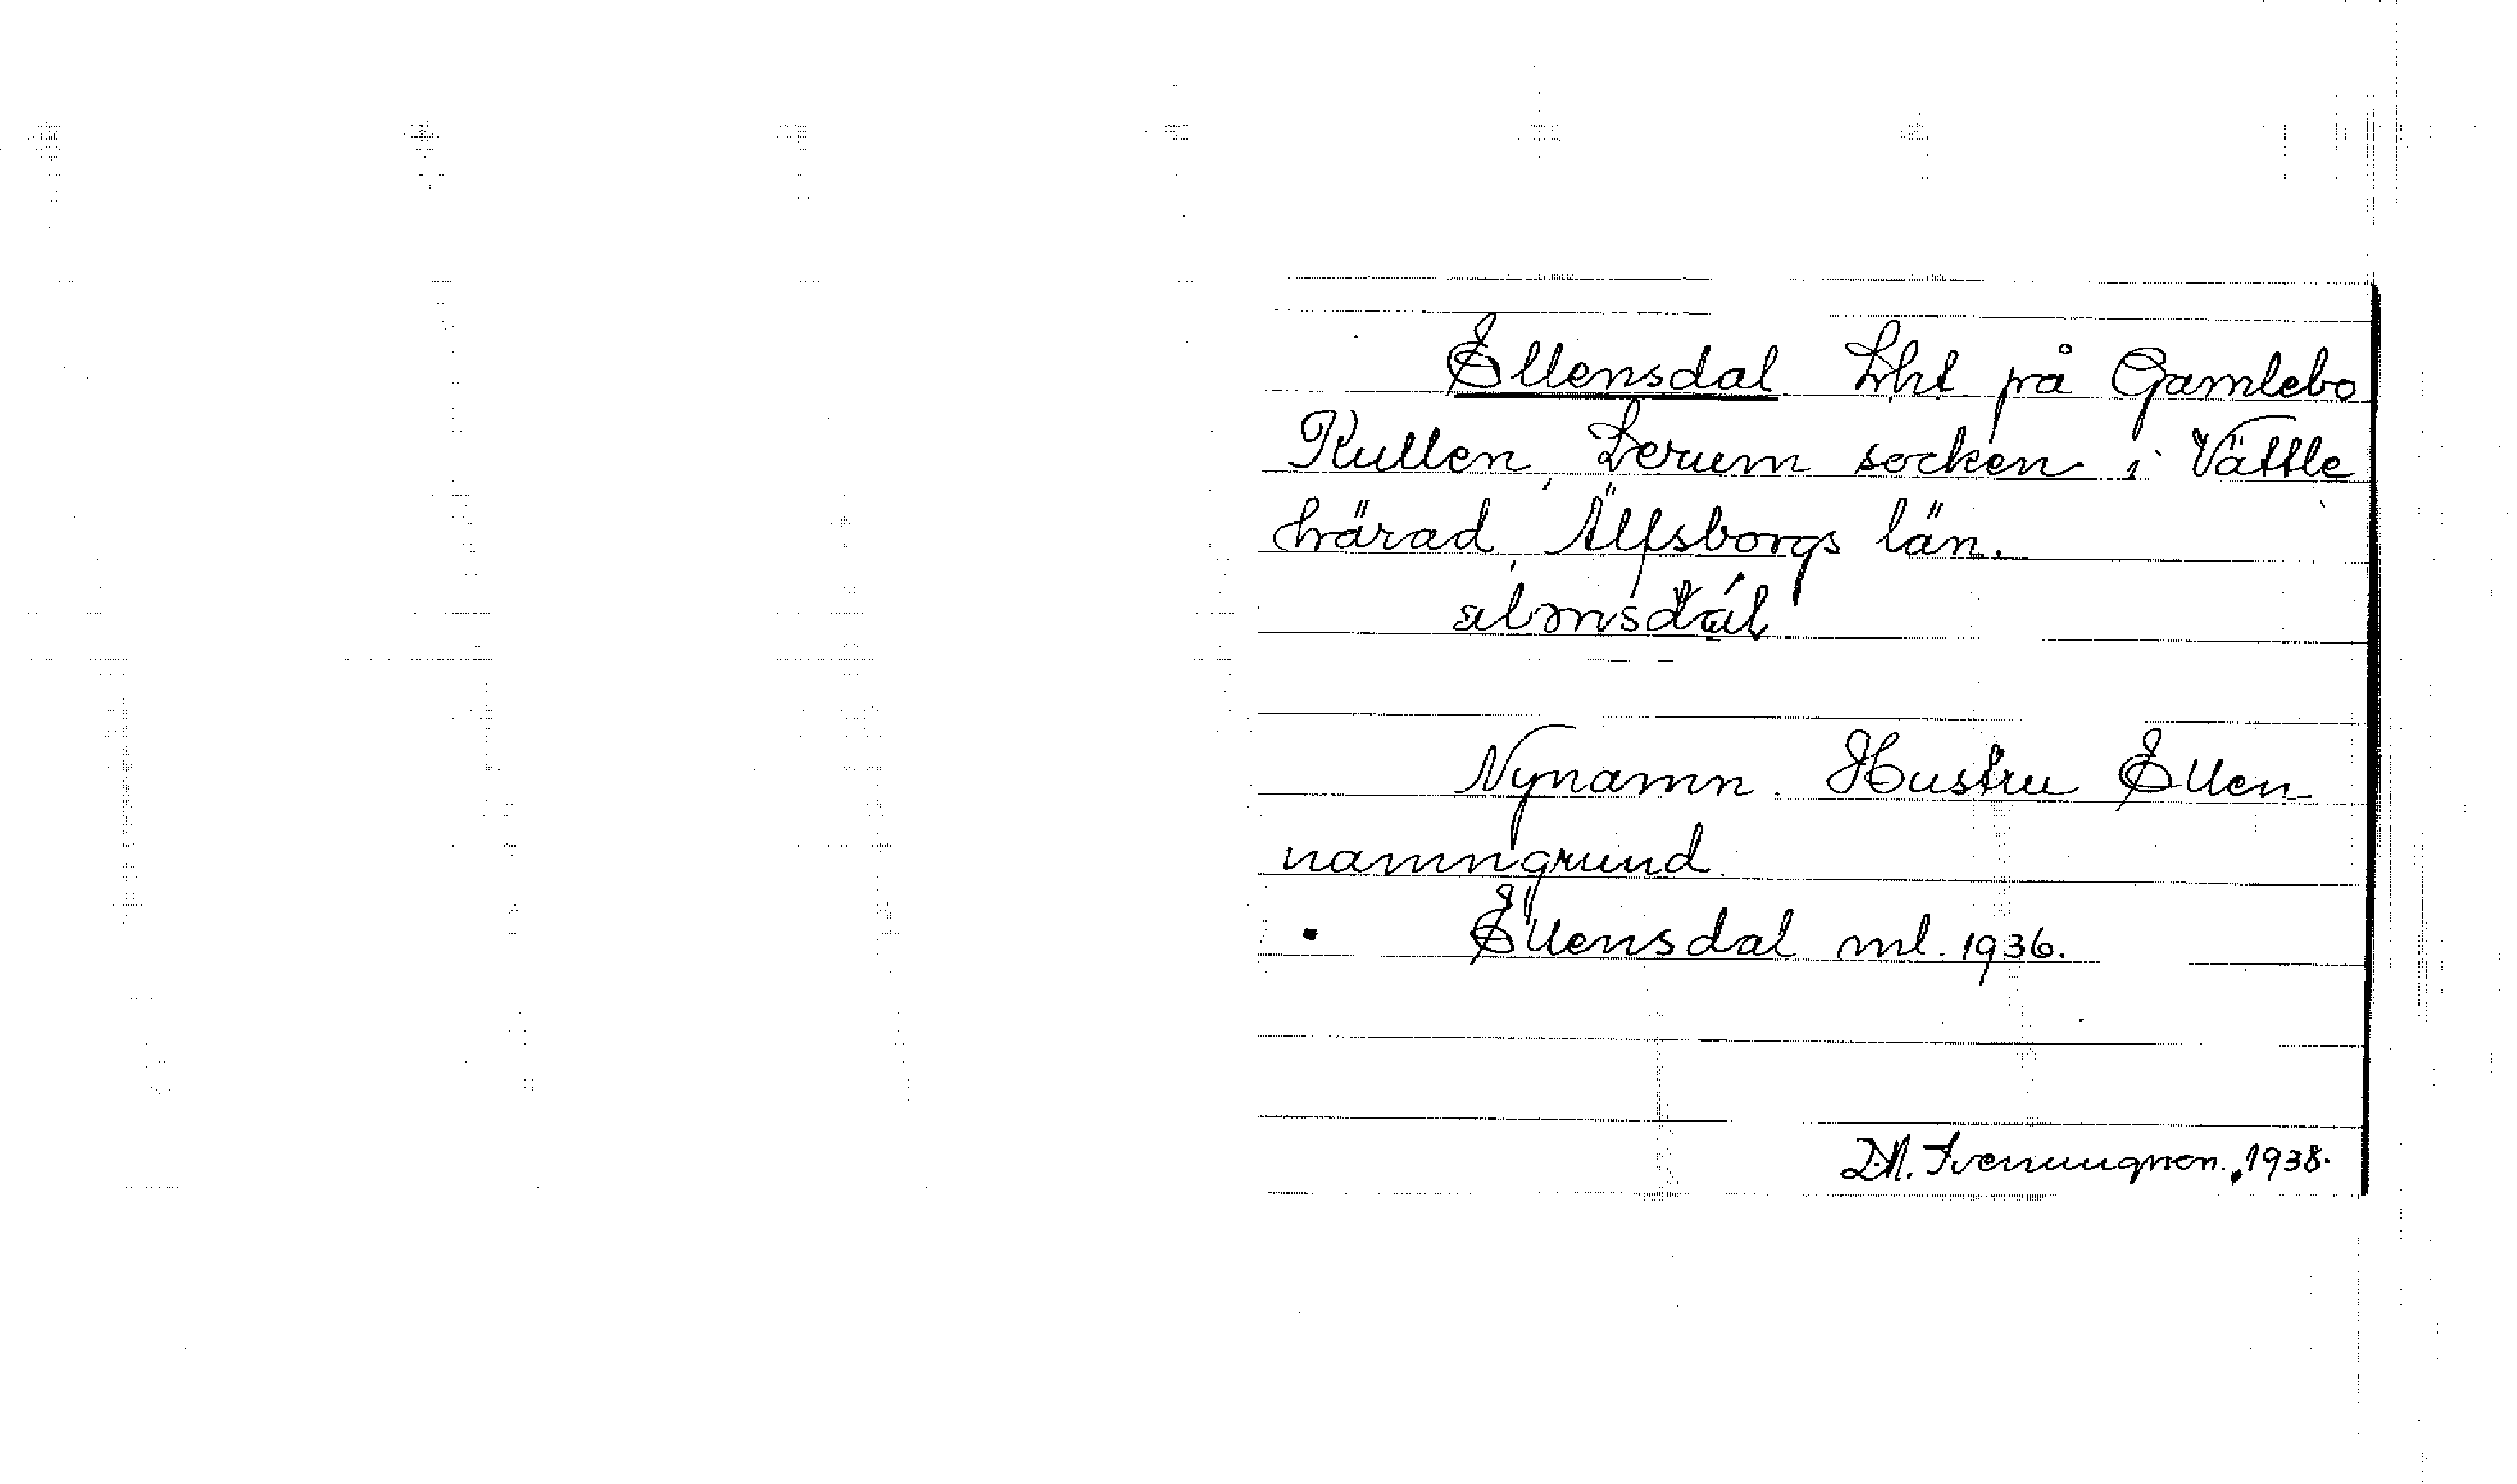 Ellensdal Lht på Gamlebo
Kullen, Lerum socken i Vättle
härad, Älfsborgs län.
Nynamn. Hustru Ellen
namngrund.
Ellensdal ml. 1936.
D.A. Svenungson. 1938.